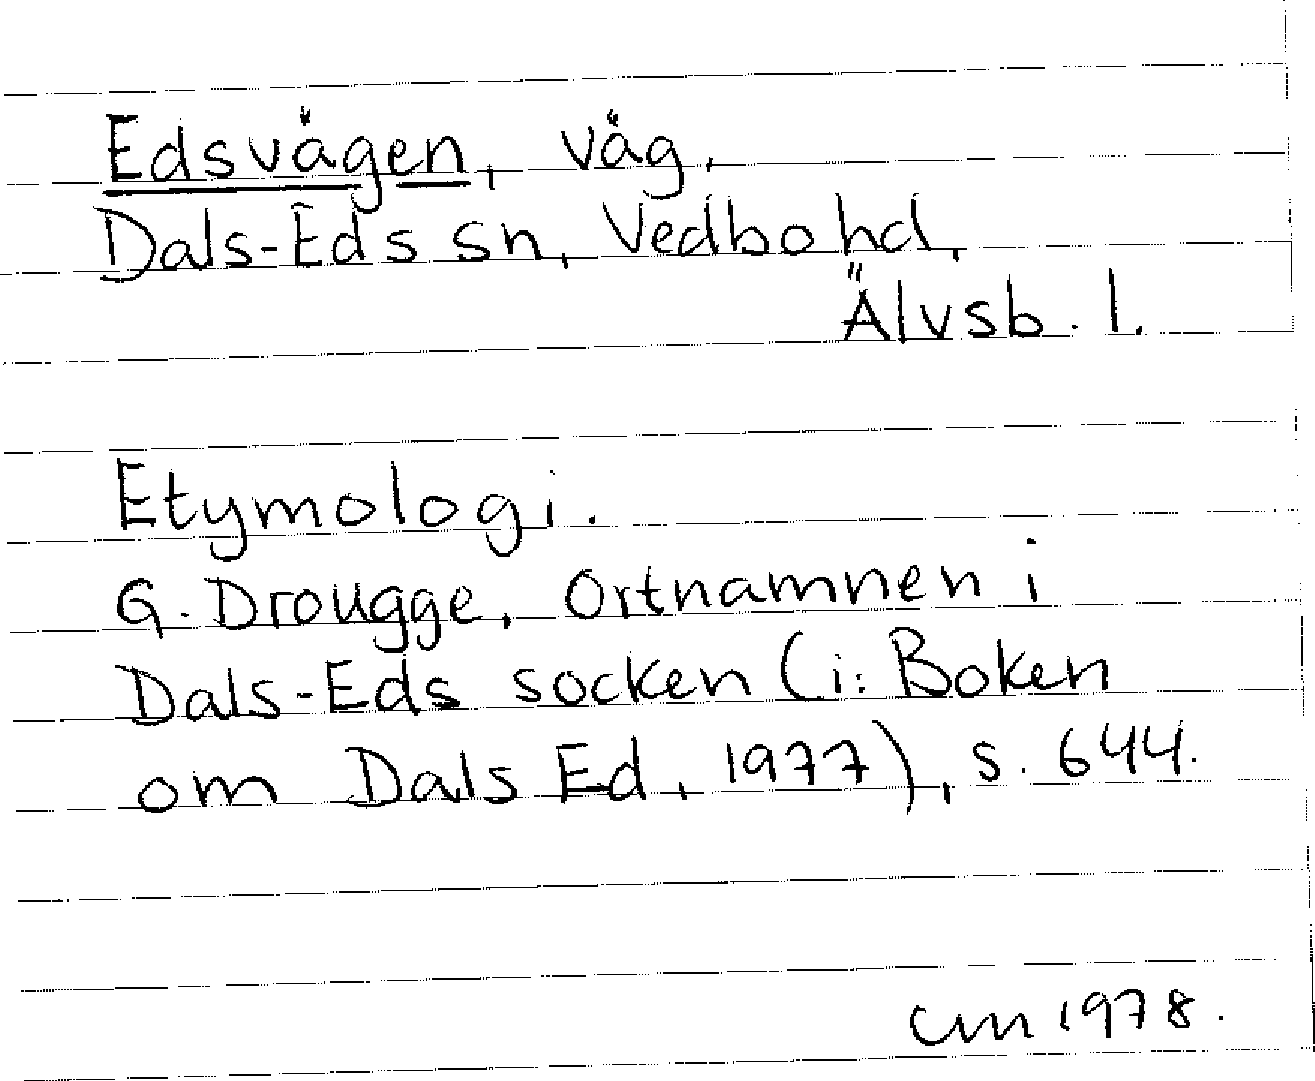 Edsvägen, väg,
Dals-Eds sn, Vedbo hd,
Älvsb. l.
Etymologi.
G. Drougge, Ortnamnen i
Dals-Eds socken (i: Boken
om Dals Ed, 1977), s. 644.
cm 1978.